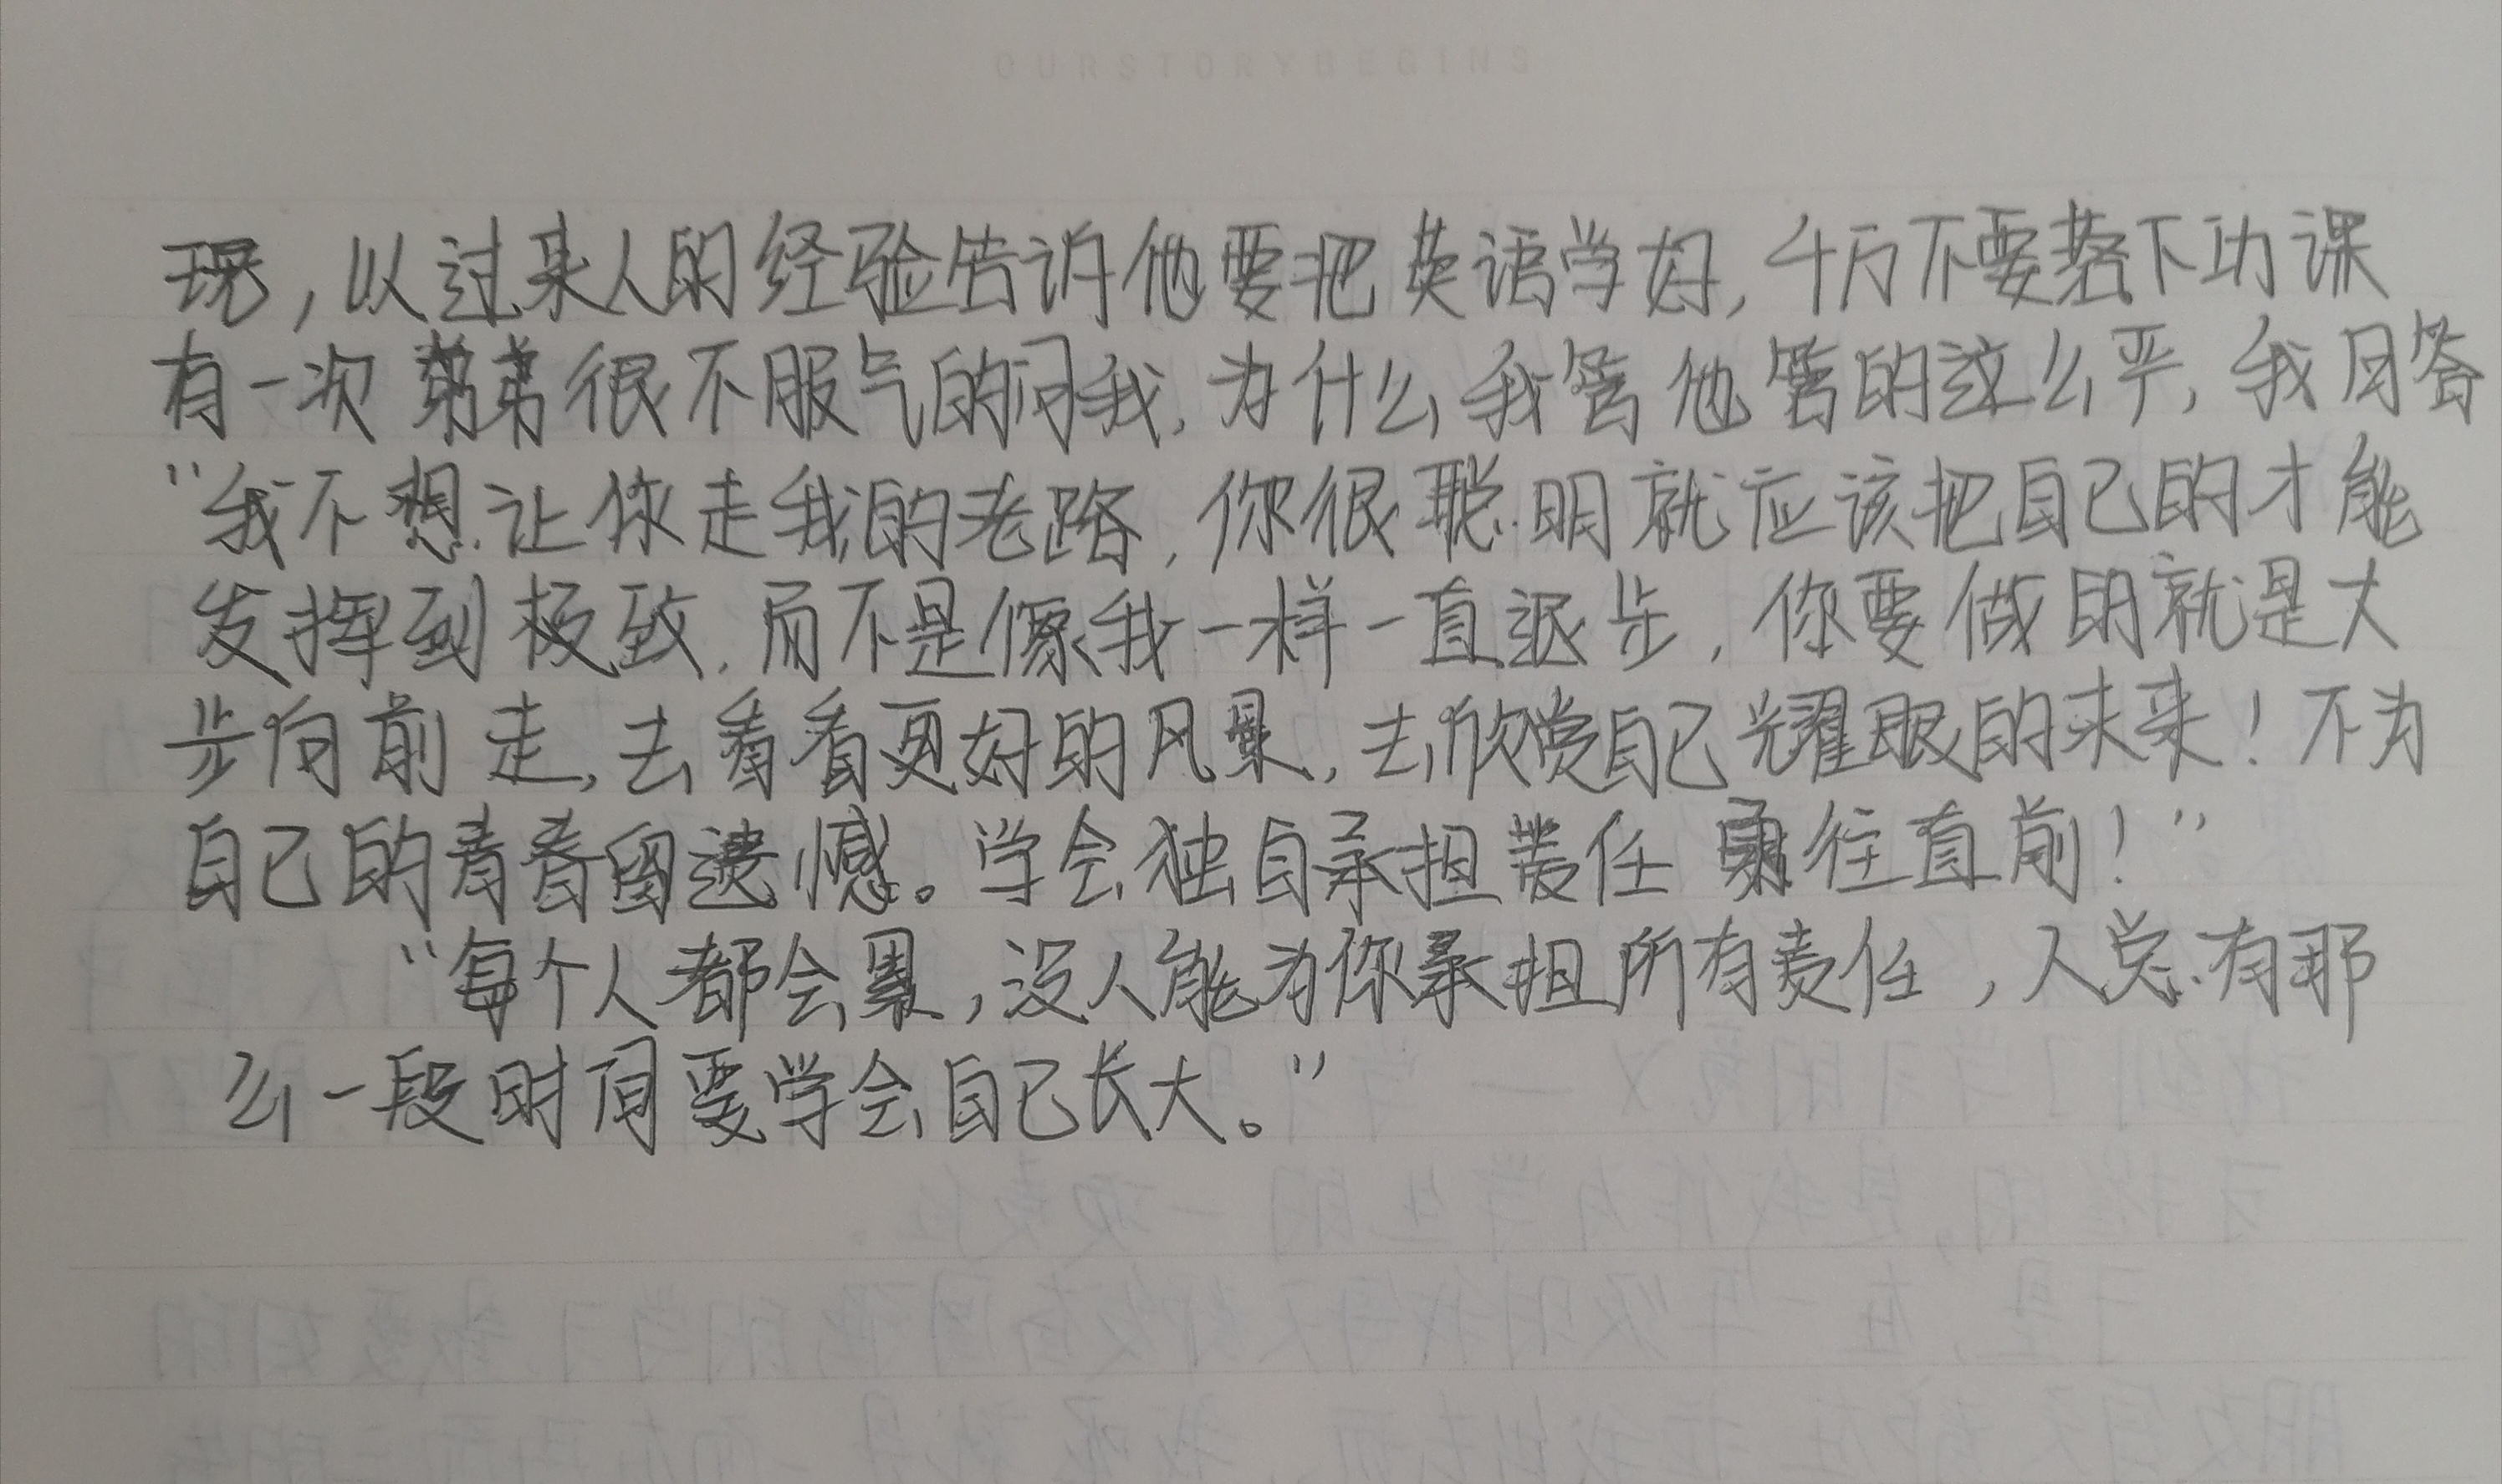 OURSTORYBEGINS
现，以过来人的经验告诉他要把英语学好，千万不要落下功课
有一次弟弟很不服气的问我，为什么我管他管的这么严，我回答
“我不想让你走我的老路，你很聪明就应该把自己的才能
发挥到极致，而不是像我一样一直退步，你要做的就是大
步向前走，去看看更好的风景，去欣赏自己耀眼的未来！不为
自己的青春留遗憾。学会独自承担责任 勇往直前！”
“每个人都会累，没人能为你承担所有责任，人总有那
么一段时间要学会自己长大。”